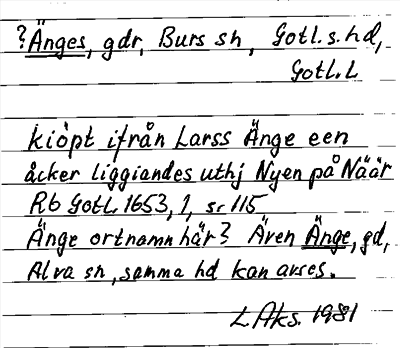 ? Änges, gdr, Burs sn, Gotl. s. hd,
Gotl. L
kiöpt ifrån Larss Änge een
åcker liggiandes uthj Nyen på Näär
Rb Gotl 1653, 1, sr 115
Änge ortnamn här? Även Änge, gd,
Alva sn, samma hd kan avses.
L Aks. 1981